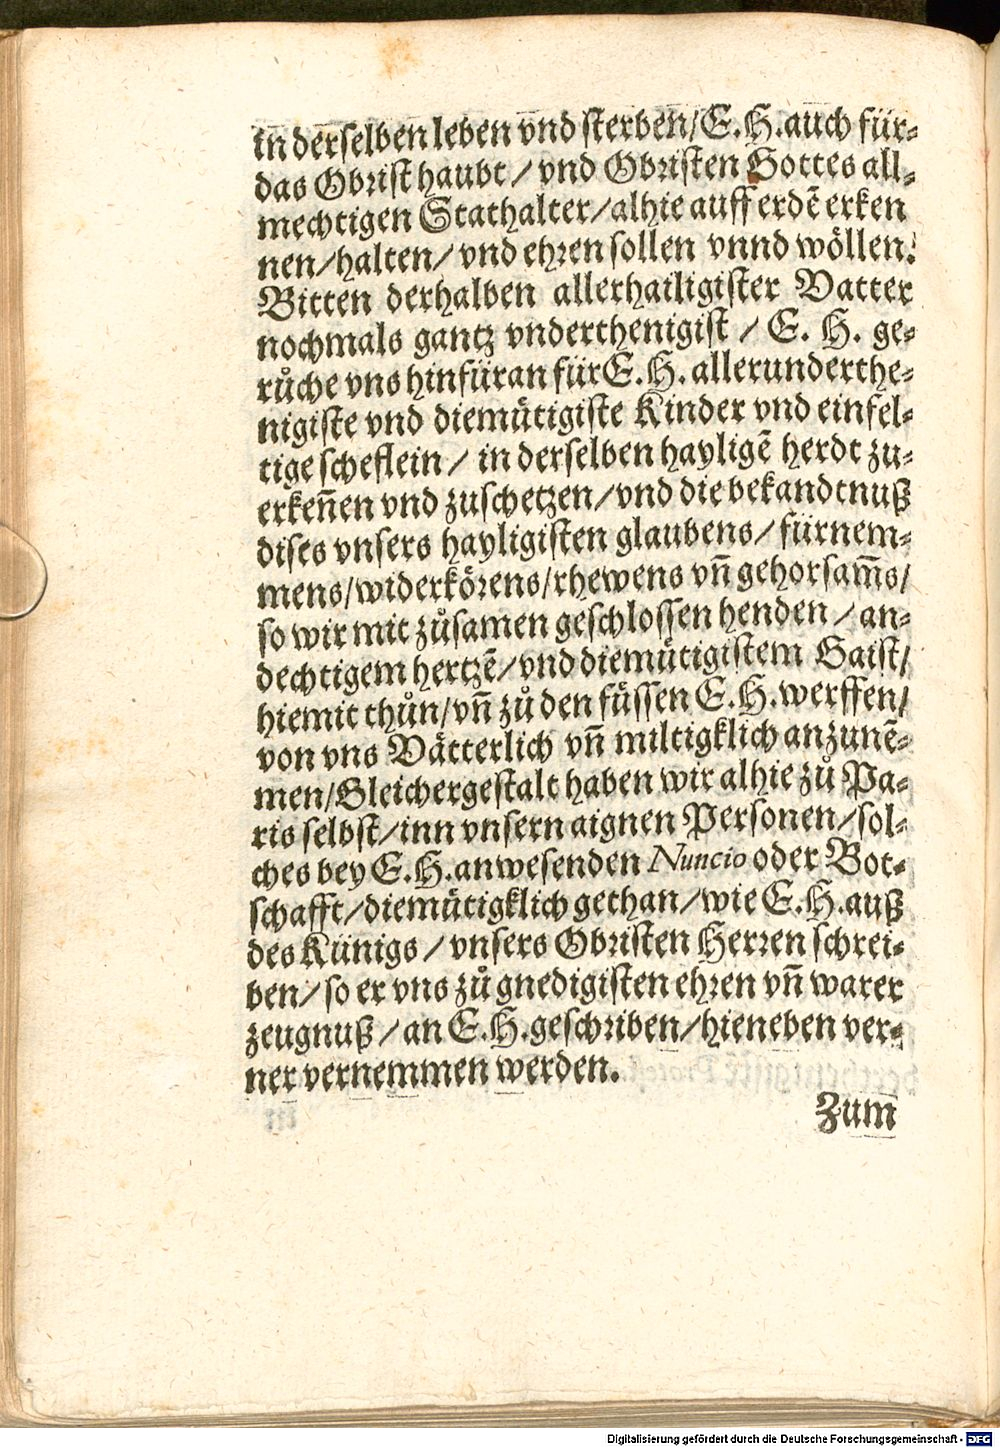 in derselben leben vnd sterben/E.H.auch für-
das Obrist haubt/ vnd Obristen Gottes all-
mechtigen Stathalter/alhie auff erdẽ erken
nen/halten/ vnd ehren sollen vnnd wöllen.
Bitten derhalben allerhailigister Vatter
nochmals gantz vnderthenigist / E. H. ge-
růche vns hinfüran für E.H. allerunderthe-
nigiste vnd diemütigiste Kinder vnd einfel-
tige scheflein / in derselben hayligẽ herdt zu-
erkeñen vnd zuschetzen/vnd die bekandtnuß
dises vnsers hayligisten glaubens/ fürnem-
mens/widerkörens/rhewens vñ gehorsam̃s/
so wir mit zůsamen geschlossen henden / an-
dechtigem hertzẽ/vnd diemütigistem Gaist/
hiemit thůn/vñ zů den füssen E.H.werffen/
von vns Vätterlich vñ miltigklich anzunẽ-
men/Gleichergestalt haben wir alhie zů Pa-
ris selbst/inn vnsern aignen Personen/sol-
ches bey E.H.anwesenden Nuncio oder Bot-
schafft/diemütigklich gethan/wie E.H.auß
des Künigs / vnsers Obristen Herren schrei-
ben/ so er vns zů gnedigisten ehren vñ warer
zeugnuß/an E.H.geschriben/hieneben ver-
ner vernemmen werden.
Zum
Digitalisierung gefördert durch die Deutsche Forschungsgemeinschaft - DFG